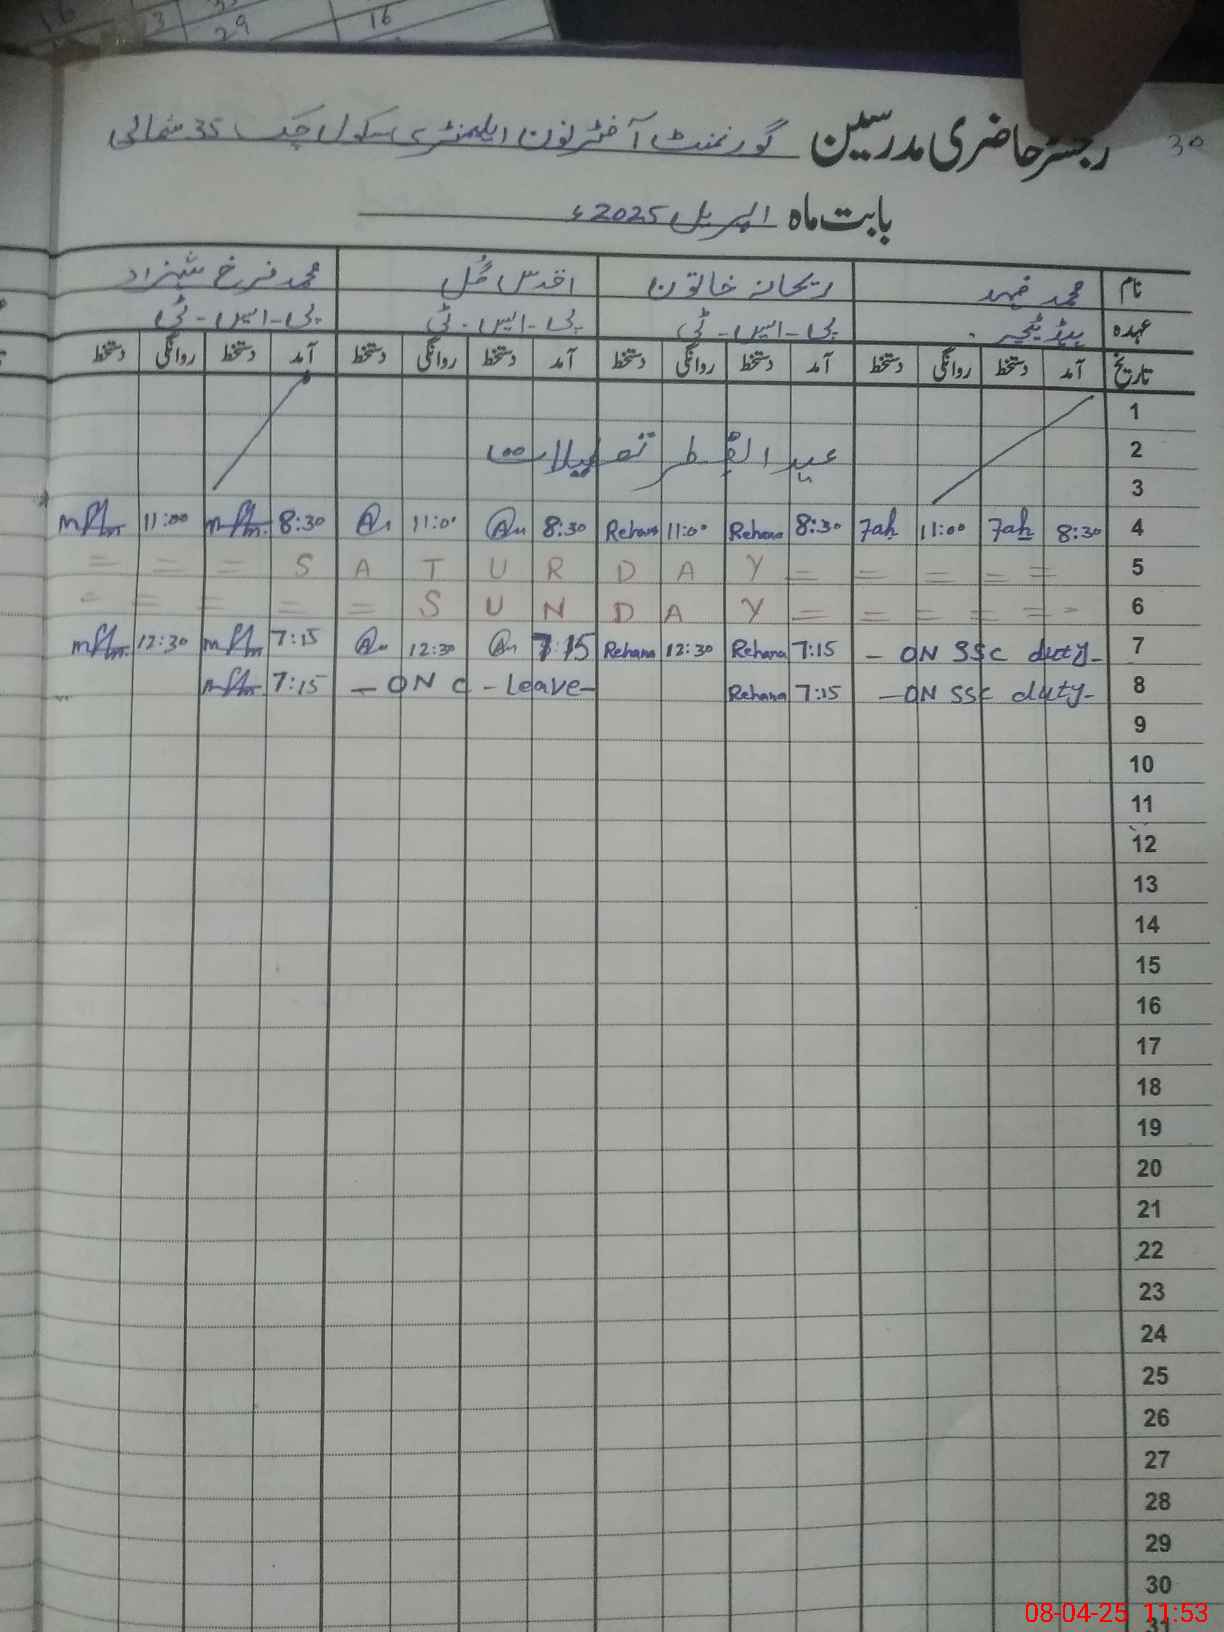 16 3 29 16
30
رجسٹر حاضری مدرسین گورنمنٹ آفٹرنون ایلیمنٹری سکول چک 35 شمالی
بابت ماہ اپریل 2025ء
نام محمد فہد ریحانہ خاتون اقدس گل محمد فرخ شہزاد
عہدہ ہیڈ ٹیچر پی-ایس-ٹی پی-ایس-ٹی پی-ایس-ٹی
تاریخ آمد دستخط روانگی دستخط آمد دستخط روانگی دستخط آمد دستخط روانگی دستخط آمد دستخط روانگی دستخط
1
2 عید الفطر تعطیلات
3
4 8:30 7ah 11:00 7ah 8:30 Rehana 11:00 Rehana 8:30 11:0 8:30 11:00
5 = = = S A T U R D A Y = = = = =
6 = = = = = S U N D A Y = = = = = -
7 - ON SSC duty- 7:15 Rehana 12:30 Rehana 7:15 12:30 7:15 12:30
8 - ON SSC duty- 7:15 Rehana - ON C - Leave- 7:15
9
10
11
12
13
14
15
16
17
18
19
20
21
22
23
24
25
26
27
28
29
30
31
08-04-25 11:53